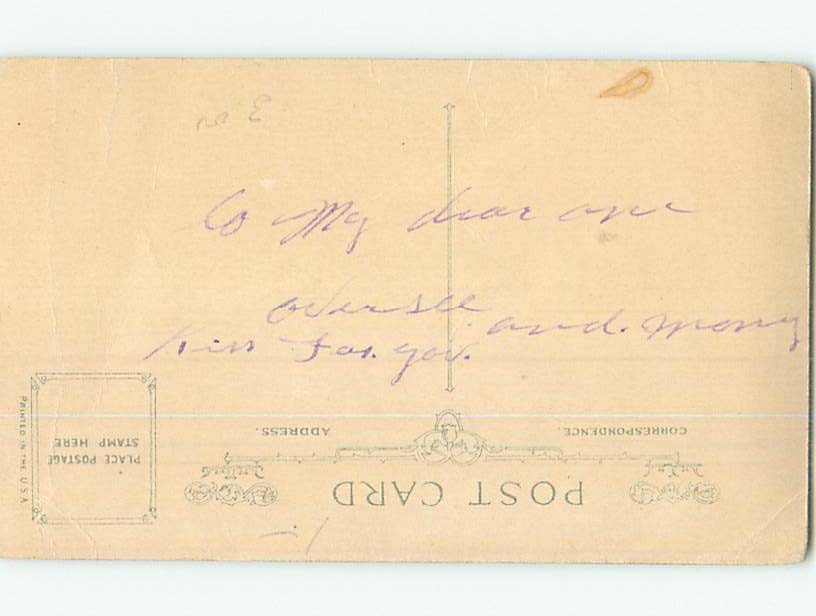 To My dear one
oversee and. many
Kiss For. you.
CORRESPONDENCE.
ADDRESS.
POST CARD
PLACE POSTAGE
STAMP HERE
PRINTED IN THE U.S.A